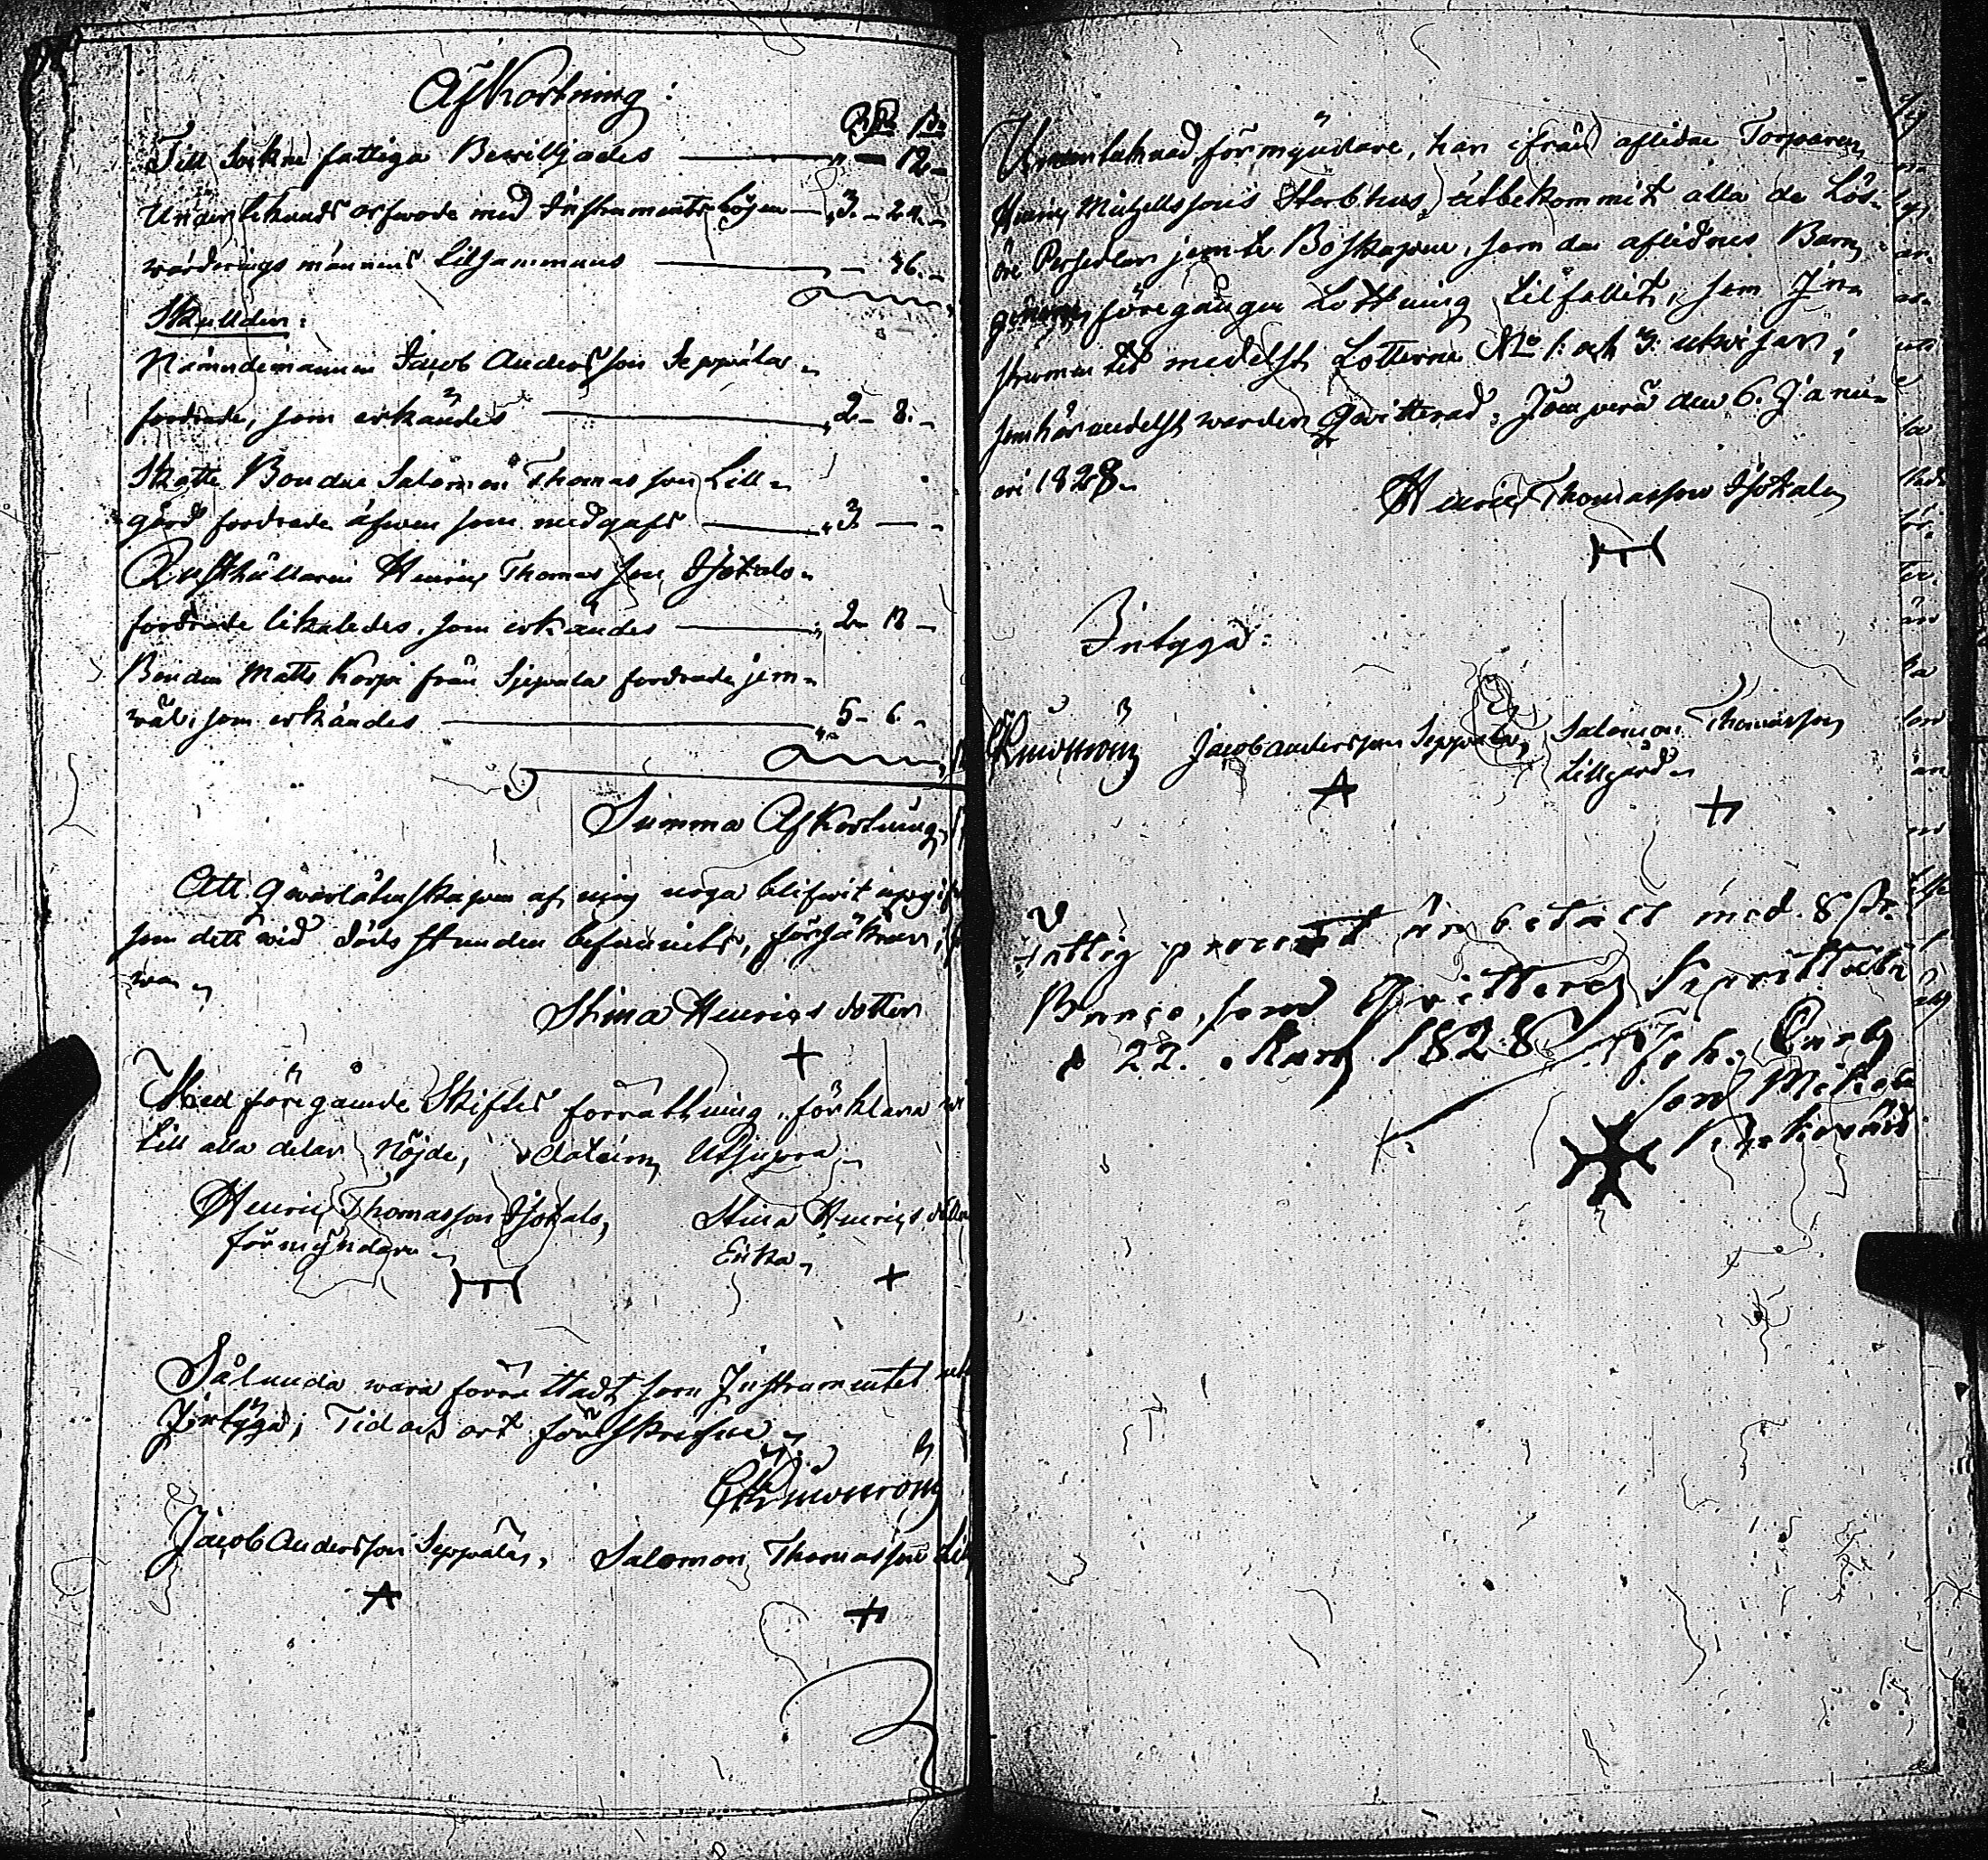 Afkortning:
RD β:
Till Sokne fattiga Bewilljades — „ — 12 –
Underteknads arfwode med Instrumentsbögen — „ 3. – 24. –
wärderings männens tilsammans — „ – 36. –
Skullder:
Nämndemannen Jacob Andersson Seppälä
fordrade, som erkändes — „ 2 – 8. –
Skatte Bonden Salomon Thomasson Lill-
gård fordrade äfwen som medgafs — „ 3 — –
Rusthållaren Henric Thomasson Isotalo
fordrade likaledes, som erkändes — „ 2 – 12 –
Bonden Matts Korpi från Seppälä fordrade jem-
wäl, som erkändes — „ 5 – 6 –
Summa Afkortning
Att qwarlåtenskapen af mig noga blifwit uppgif
som dett wid döds stunden befunnits, försäkrar,
Stina Henrics dotter
+
Med föregående Skiftes förrättning, förklara wi
till alla delar Nöjde, datum Utsupra
Henric Thomasson Isotalo,
Stina Henrics dotter
förmyndare
Enka
+
Sålunda wara förrättadt som Instrumentet
Intyga; Tid och ort förr skrefne
Jacob Andersson Seppälä, Salomon Thomasson Lill
A +
Undertecknad förmyndare, har ifrån aflidne Torparen
Henric Michellssons Sterbhus, utbekommit alla de Lös-
öre Persedlar jemte Boskapen, som den aflidnes Barn
genom föregången Lottning tilfallit, som In-
strumentet medelst Lotterne No 1: och 3: utwisar;
som härmedelst warder Qwitterad. Jompera den 6. Janu-
ari 1828.
Henric Thomasson Isotalo
Intyga:
Jacob Andersson Seppälä, Salomon Thomasson
Lillgård
A +
fattig procent är betalt med 8 βr.
Banco, som Qvitteras
d 22. Marz 1828 Joh: